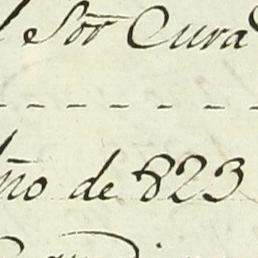 el Sor Cura
ño de 823